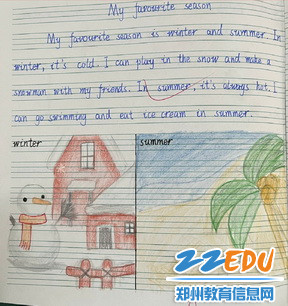 My favourite season
My favourite season is winter and summer. In
winter, it's cold. I can play in the snow and make a
snowman with my friends. In summer, it's always hot. I
can go swimming and eat ice cream in summer.
winter
summer
ZZEDU
郑州教育信息网